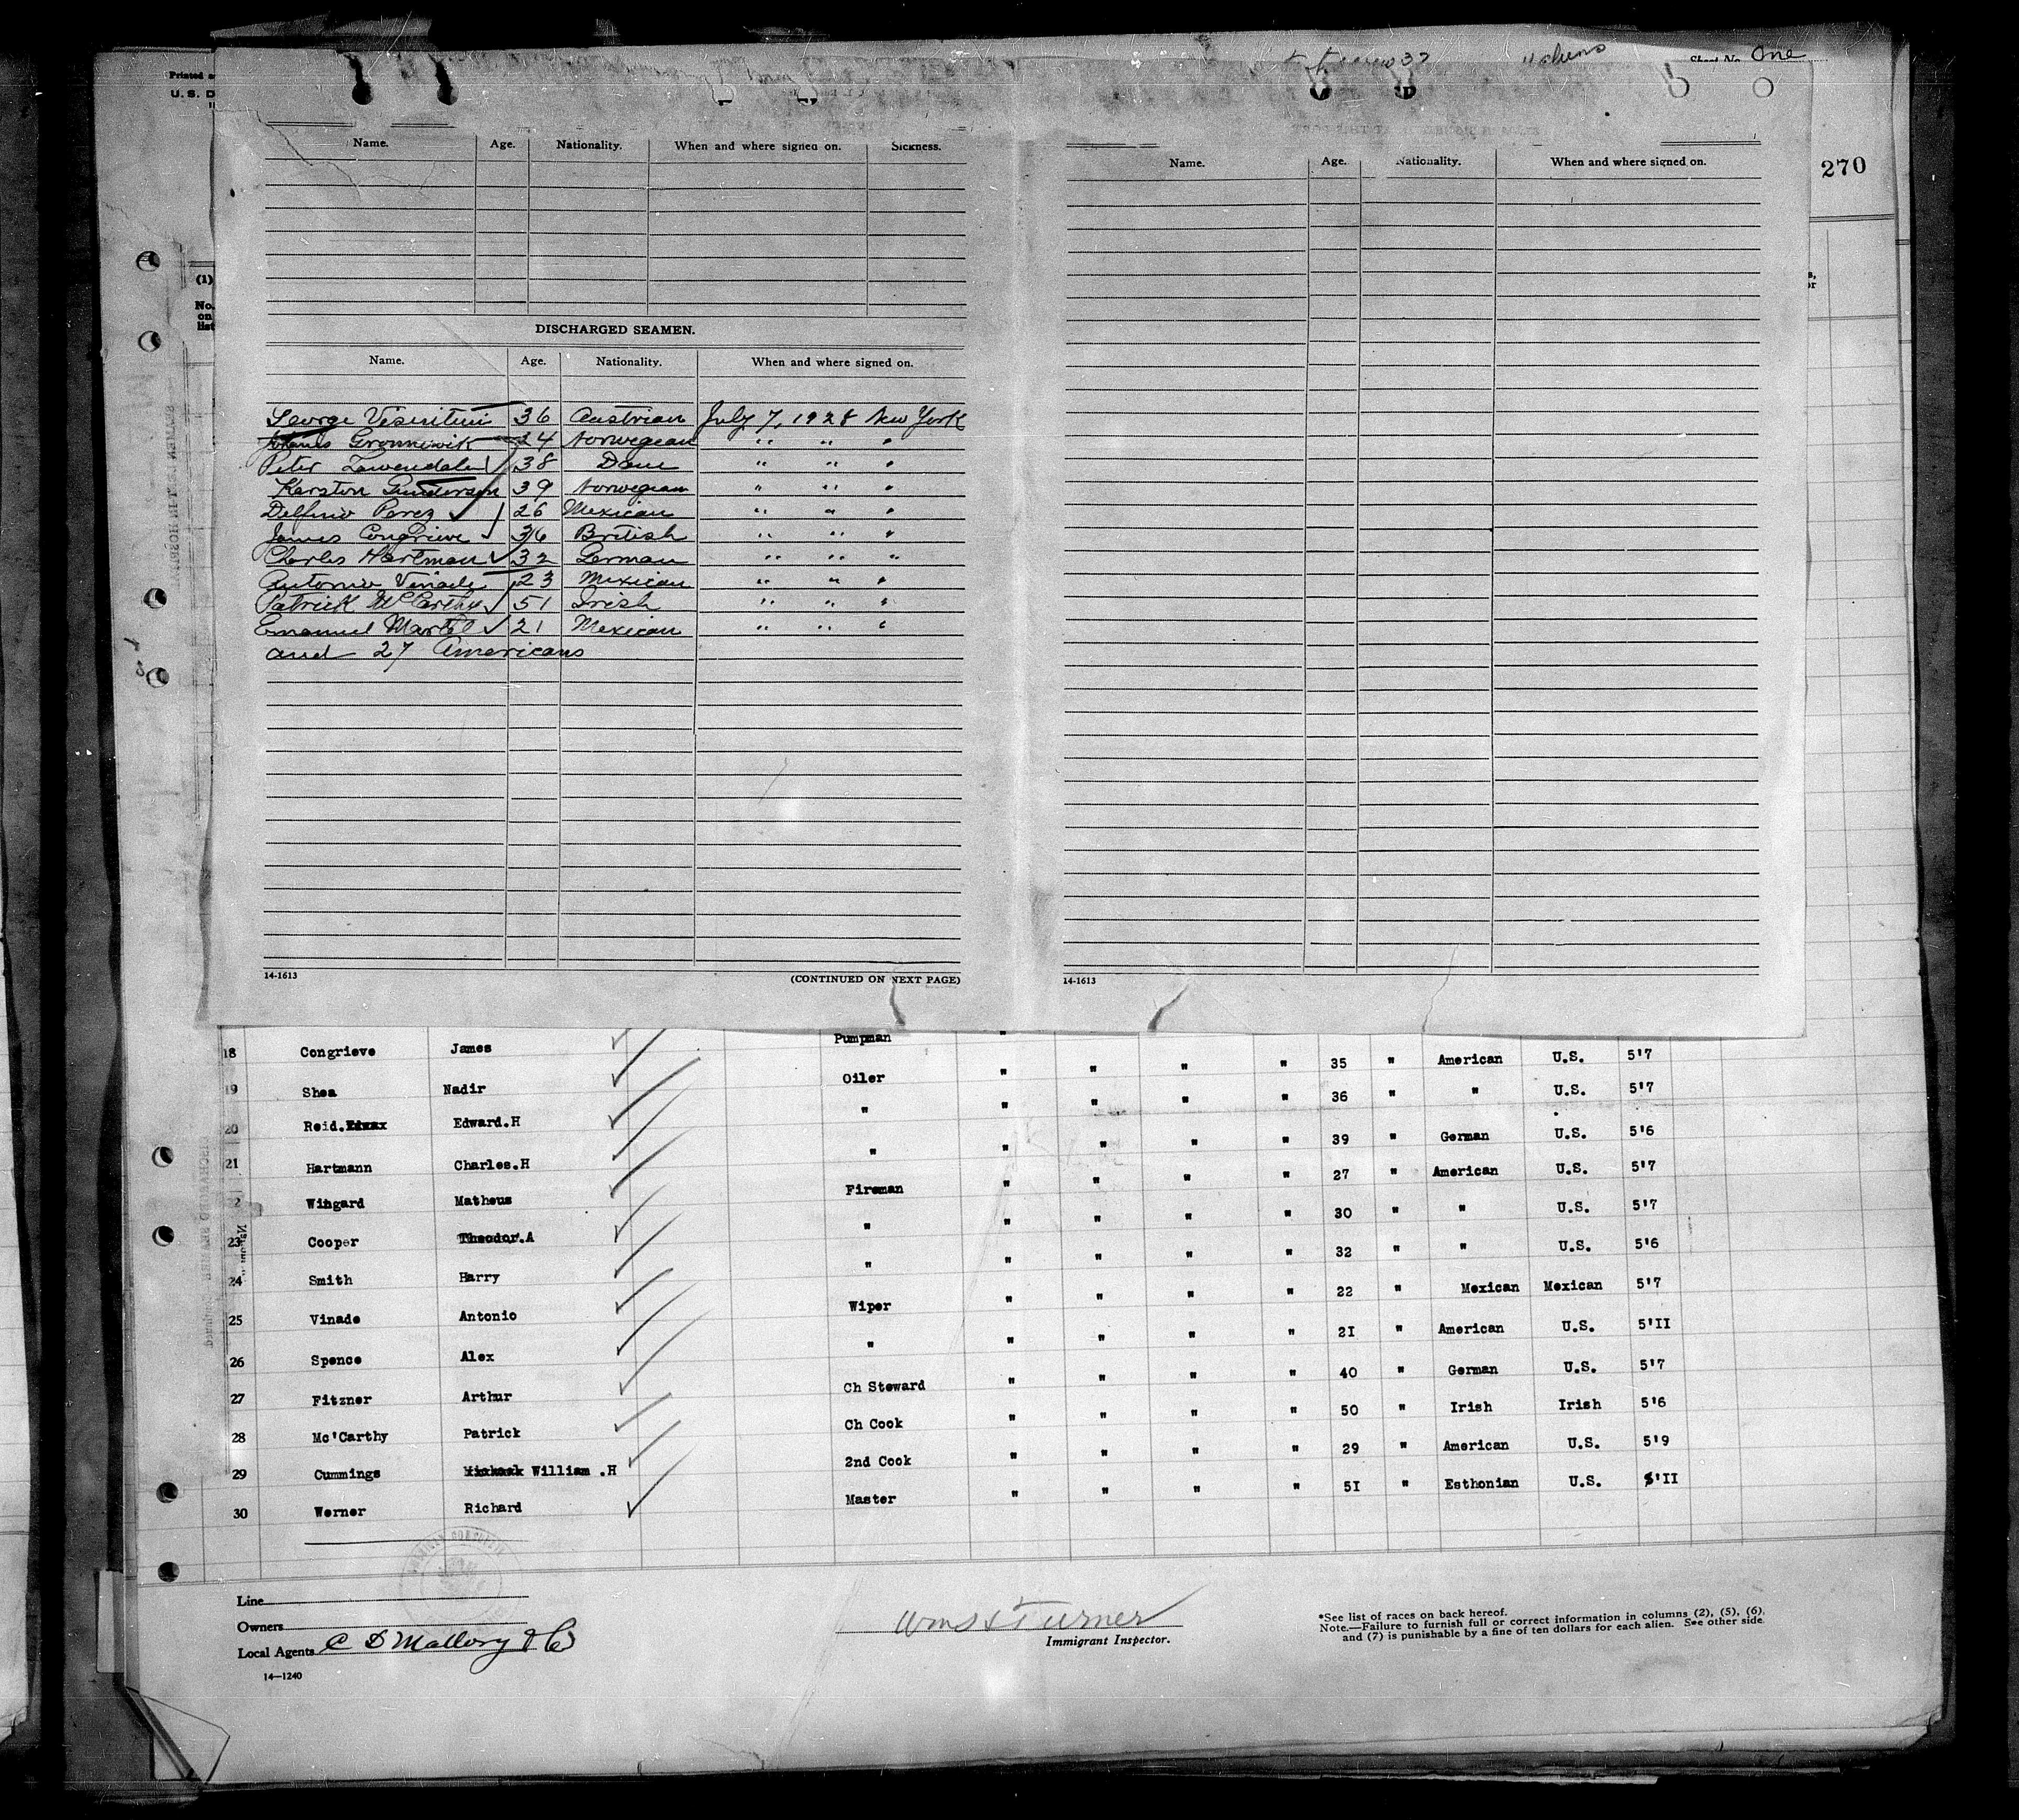 Printed
U. S. D
Sheet No. One
270
(1)
No. on list
Name. Age. Nationality. When and where signed on. Sickness.
DISCHARGED SEAMEN.
Name. Age. Nationality. When and where signed on.
George Visintini 36 Austrian July 7, 1928 New York
24 Norwegian " " "
Peter 38 Dane " " "
Karston Gunderson 39 Norwegian " " "
Delfino Perez 26 Mexican " " "
James Congrieve 36 British " " "
Charles Hartman 32 German " " "
Antonio Vinade 23 Mexican " " "
Patrick McCarthy 51 Irish " " "
Emanuel Martel 21 Mexican " " "
and 27 Americans
14-1613 (CONTINUED ON NEXT PAGE)
Name. Age. Nationality. When and where signed on.
14-1613
18 Congrieve James Pumpman "
19 Shea Nadir Oiler " " " " 35 " American U.S. 5'7
20 Reid. Edward.H " " " " " 36 " " U.S. 5'7
21 Hartmann Charles.H " " " " " 39 " German U.S. 5'6
2 Wingard Matheus Fireman " " " " 27 " American U.S. 5'7
23 Cooper Theodor.A " " " " " 30 " " U.S. 5'7
24 Smith Harry " " " " " 32 " " U.S. 5'6
25 Vinade Antonio Wiper " " " " 22 " Mexican Mexican 5'7
26 Spence Alex " " " " " 2I " American U.S. 5'II
27 Fitzner Arthur Ch Steward " " " " 40 " German U.S. 5'7
28 Mc'Carthy Patrick Ch Cook " " " " 50 " Irish Irish 5'6
29 Cummings William .H 2nd Cook " " " " 29 " American U.S. 5'9
30 Werner Richard Master " " " " 5I " Esthonian U.S. 5'II
Line
Owners
Local Agents C D Mallory & Co
14—1240
Wm S Turner
Immigrant Inspector.
*See list of races on back hereof.
Note.—Failure to furnish full or correct information in columns (2), (5), (6),
and (7) is punishable by a fine of ten dollars for each alien. See other side